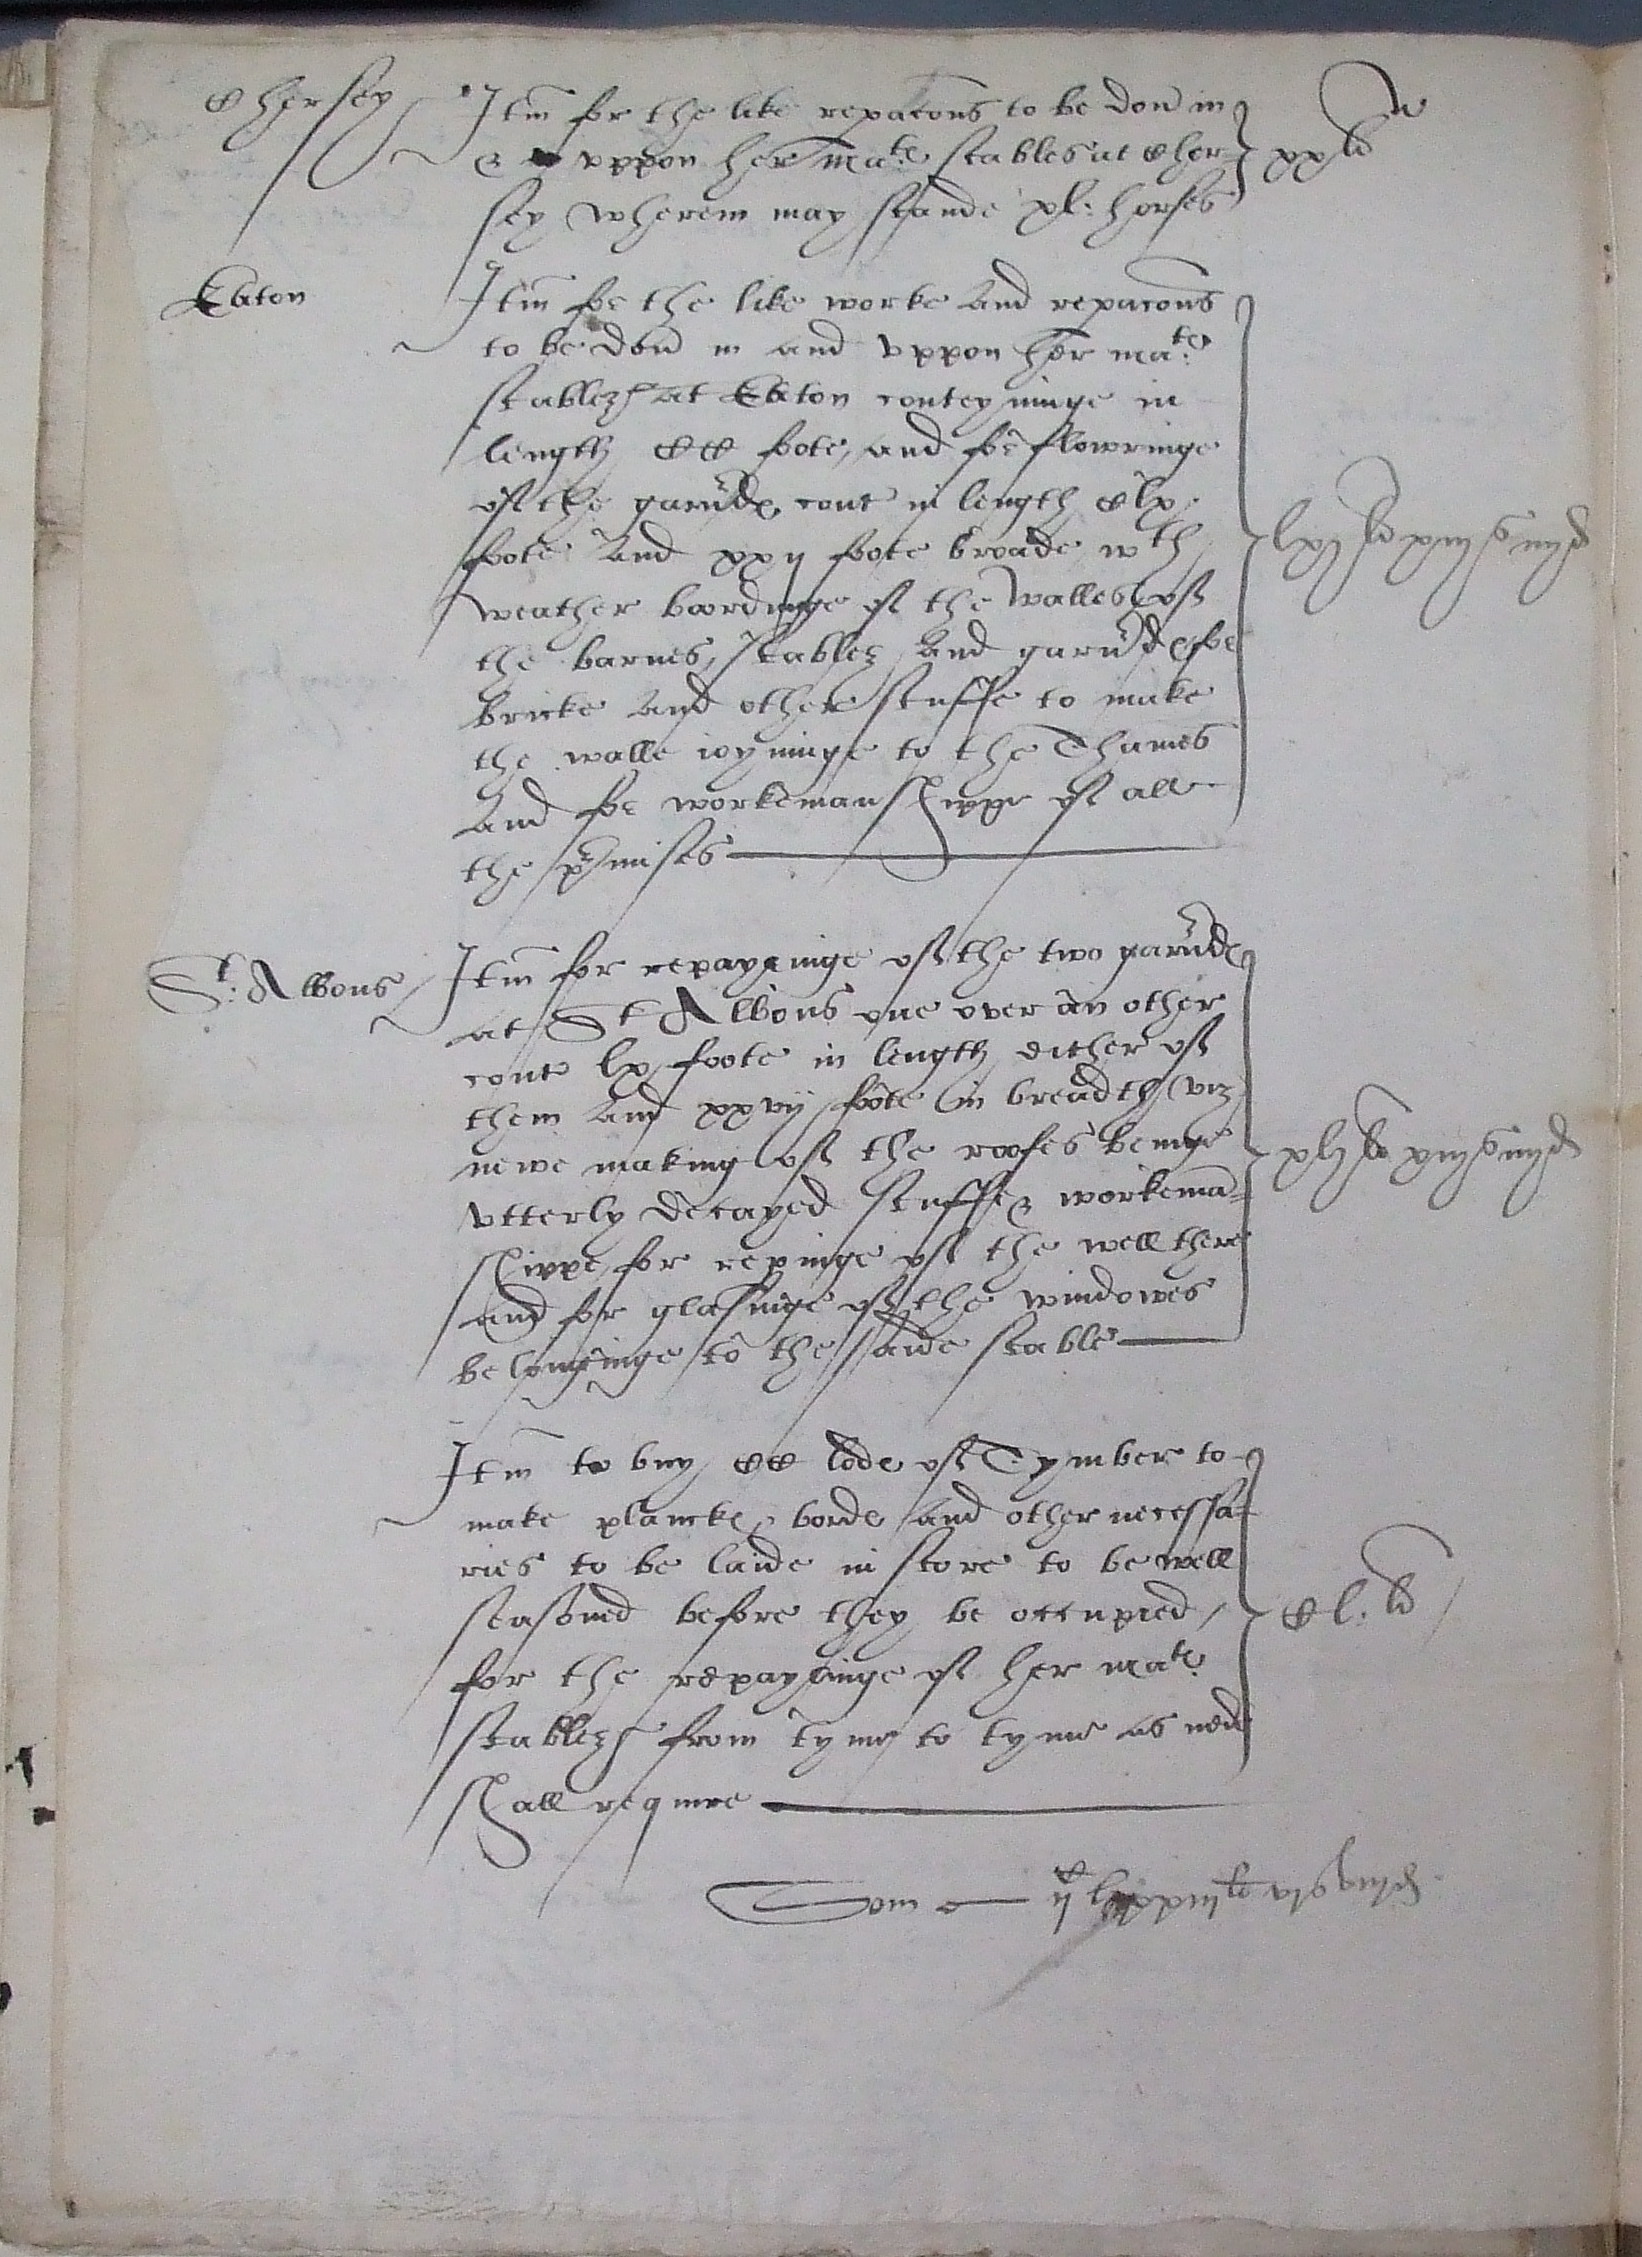 Chersey Itm for the like repacons to be don in
& uppon her Mate stables at Cher- xx li
sey wherein may stande xl: horses
Eaton Itm for the like worke and repacons
to be don in and uppon her mate
stables at Eaton conteyninge in
length CC foote, and for flowringe
of the garn'de cont in length Clx
foote and xxij foote broade wth lxvj li xiij s iiij d
weather bordinge of the walles of
the barnes, stables, and garn'de for
bricke and other stuffe to make
the walle ioyninge to the Thames
and for workemanshippe of all
the p'misses
St: Albons Itm for repayringe of the two garn'de
at St Albons one over an other
cont lx foote in length either of
them and xxvij foote in breadth viz
newe making of the roofes beinge xlvj li xiij s iiij d
utterly decayed stuffe & workeman-
shippe, for repinge of the well there
and for glasinge of the windowes
belonginge to the saide stable
Itm to buy CC lode of Tymber to
make plancke, borde and other necessa-
ries to be laide in store to be well
seasoned before they be occupied, Cl. li
for the repayringe of her Mate
stables from tyme to tyme as nede
shall require
Som